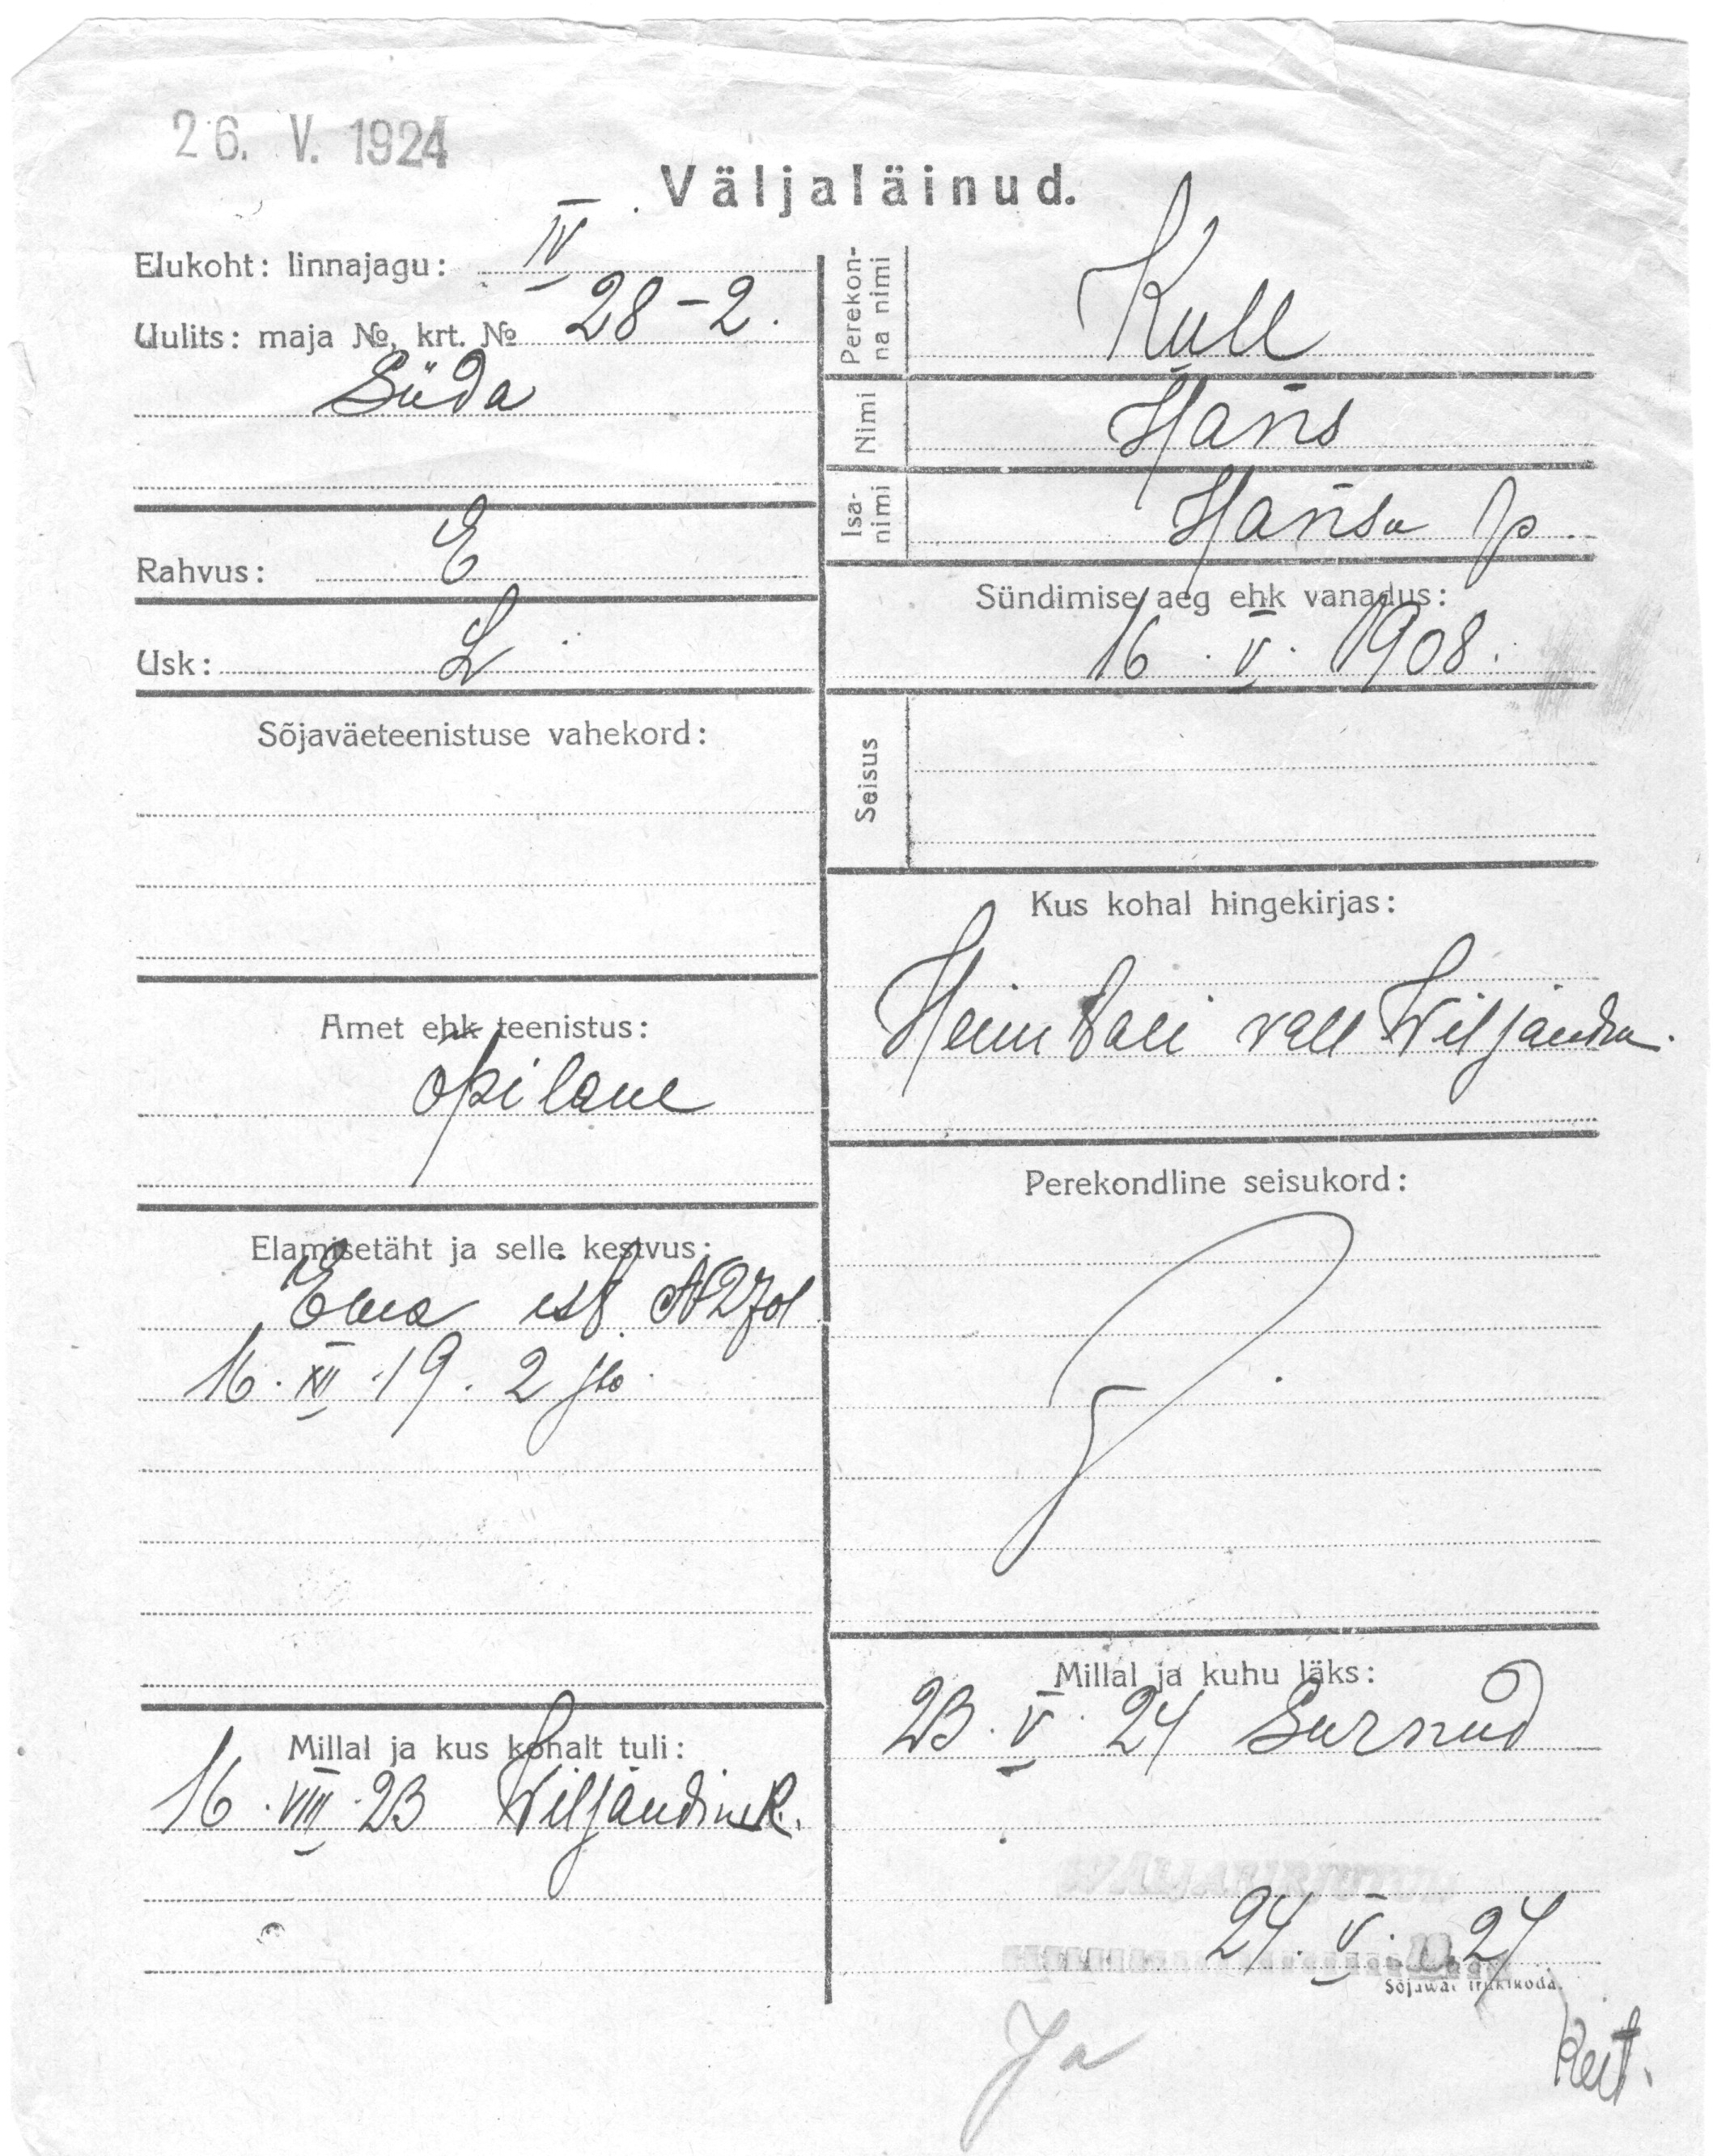 26. V. 1924
Väljaläinud.
Elukoht: linnajagu: IV
Uulits: maja №, krt. № 28-2.
Süda
Rahvus: E
Usk: L
Sõjaväeteenistuse vahekord:
Amet ehk teenistus:
õpilane
Elamisetäht ja selle kestvus:
Ema
16. XII. 19. 2 js.
Millal ja kus kohalt tuli:
16. VIII. 23 Wiljandimk.
Perekon-
na nimi
Kull
Nimi Hans
Isa-
nimi
Hansu p.
Sündimise aeg ehk vanadus:
16. V. 1908.
Seisus
Kus kohal hingekirjas:
Heimtali vall Wiljandim.
Perekondline seisukord:
Millal ja kuhu läks:
23. V. 24 Surnud
WÄLJAKIRJUTUD
24. V. 24
Sõjawäe trükikoda.
Ja